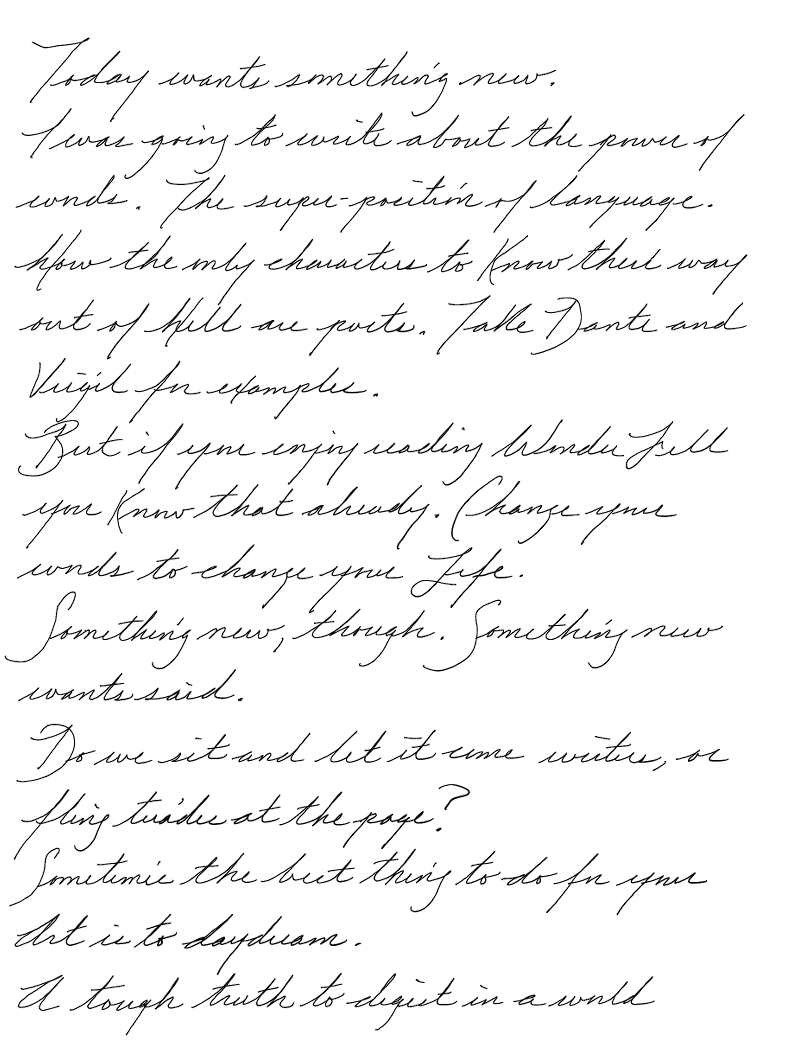 Today wants something new.
I was going to write about the power of
words. The super-position of language.
How the only characters to Know their way
out of Hell are poets. Take Dante and
Virgil for examples.
But if you enjoy reading Wonder Fell
you Know that already. Change your
words to change your Life.
Something new, though. Something new
wants said.
Do we sit and let it come writers, or
fling tirades at the page?
Sometimes the best thing to do for your
Art is to daydream.
A tough truth to digest in a world